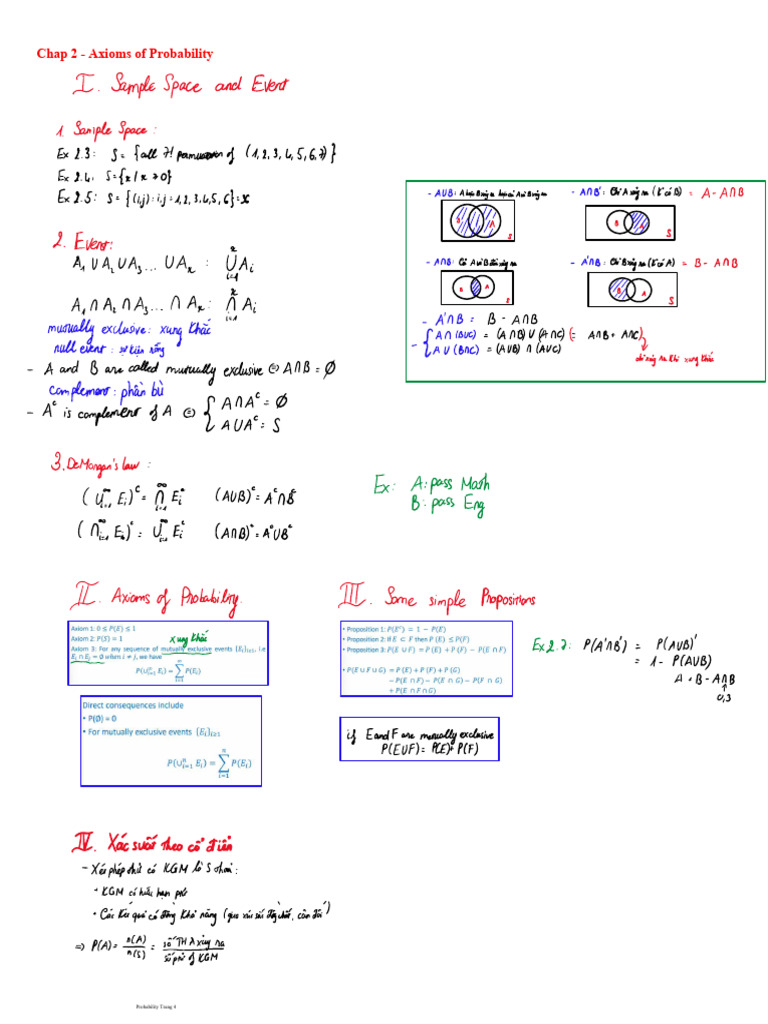 Chap 2 - Axioms of Probability
I. Sample Space and Event
1. Sample Space :
Ex 2.3: S = {all 7! permutation of (1,2,3,4,5,6,7)}
Ex 2.4: S={x/x≥0}
Ex 2.5: S = {(i,j): i,j = 1,2,3,4,5,6}
2. Event:
A₁ ∪ A₂ ∪ A₃ ... ∪ Aₙ : ⋃ⁿᵢ₌₁ Aᵢ
A₁ ∩ A₂ ∩ A₃ ... ∩ Aₙ : ⋂ⁿᵢ₌₁ Aᵢ
mutually exclusive: xung khắc
null event : sự kiện rỗng
- A and B are called mutually exclusive ⇔ A∩B = ∅
complement : phần bù
- Aᶜ is complement of A ⇔ { A∩Aᶜ = ∅
A∪Aᶜ = S
- A∪B:
- A∩B': Chỉ A xảy ra (k có B) = A - A∩B
B A S
B A S
- A∩B: Cả A và B đều xảy ra
- A'∩B: Chỉ B xảy ra (k có A) = B - A∩B
B A S
B A S
- A'∩B = B - A∩B
- { A∩(B∪C) = (A∩B)∪(A∩C) (= A∩B + A∩C)
A∪(B∩C) = (A∪B)∩(A∪C)
chỉ xảy ra khi xung khắc
3. DeMorgan's law :
(⋃^∞ᵢ₌₁ Eᵢ)ᶜ = ⋂^∞ᵢ₌₁ Eᵢᶜ (A∪B)ᶜ = Aᶜ∩Bᶜ
(⋂^∞ᵢ₌₁ Eᵢ)ᶜ = ⋃^∞ᵢ₌₁ Eᵢᶜ (A∩B)ᶜ = Aᶜ∪Bᶜ
Ex: A: pass Math
B: pass Eng
II. Axioms of Probability.
Axiom 1: 0 ≤ P(E) ≤ 1
Axiom 2: P(S) = 1
xung khắc
Axiom 3: For any sequence of mutually exclusive events {Eᵢ}ᵢ≥₁, i.e
Eᵢ ∩ Eⱼ = ∅ when i ≠ j, we have
P(∪^∞ᵢ₌₁ Eᵢ) = ∑^∞ᵢ₌₁ P(Eᵢ)
Direct consequences include
• P(∅) = 0
• For mutually exclusive events {Eᵢ}ᵢ≥₁
P(∪ⁿᵢ₌₁ Eᵢ) = ∑ⁿᵢ₌₁ P(Eᵢ)
III. Some simple Propositions
• Proposition 1: P(Eᶜ) = 1 − P(E)
• Proposition 2: If E ⊂ F then P(E) ≤ P(F)
• Proposition 3: P(E ∪ F) = P(E) + P(F) − P(E ∩ F)
• P(E ∪ F ∪ G) = P(E) + P(F) + P(G)
− P(E ∩ F) − P(E ∩ G) − P(F ∩ G)
+ P(E ∩ F ∩ G)
if E and F are mutually exclusive
P(E∪F) = P(E) + P(F)
Ex 2.7: P(A'∩B') = P(A∪B)'
= 1 - P(A∪B)
A + B - A∩B
0,3
IV. Xác suất theo cổ điển
- Xét phép thử có KGM là S thoả:
• KGM có hữu hạn ptử
• Các kết quả có đồng khả năng
⇒ P(A) = n(A)/n(S) = số TH A xảy ra/số ptử of KGM
Probability Trang 4